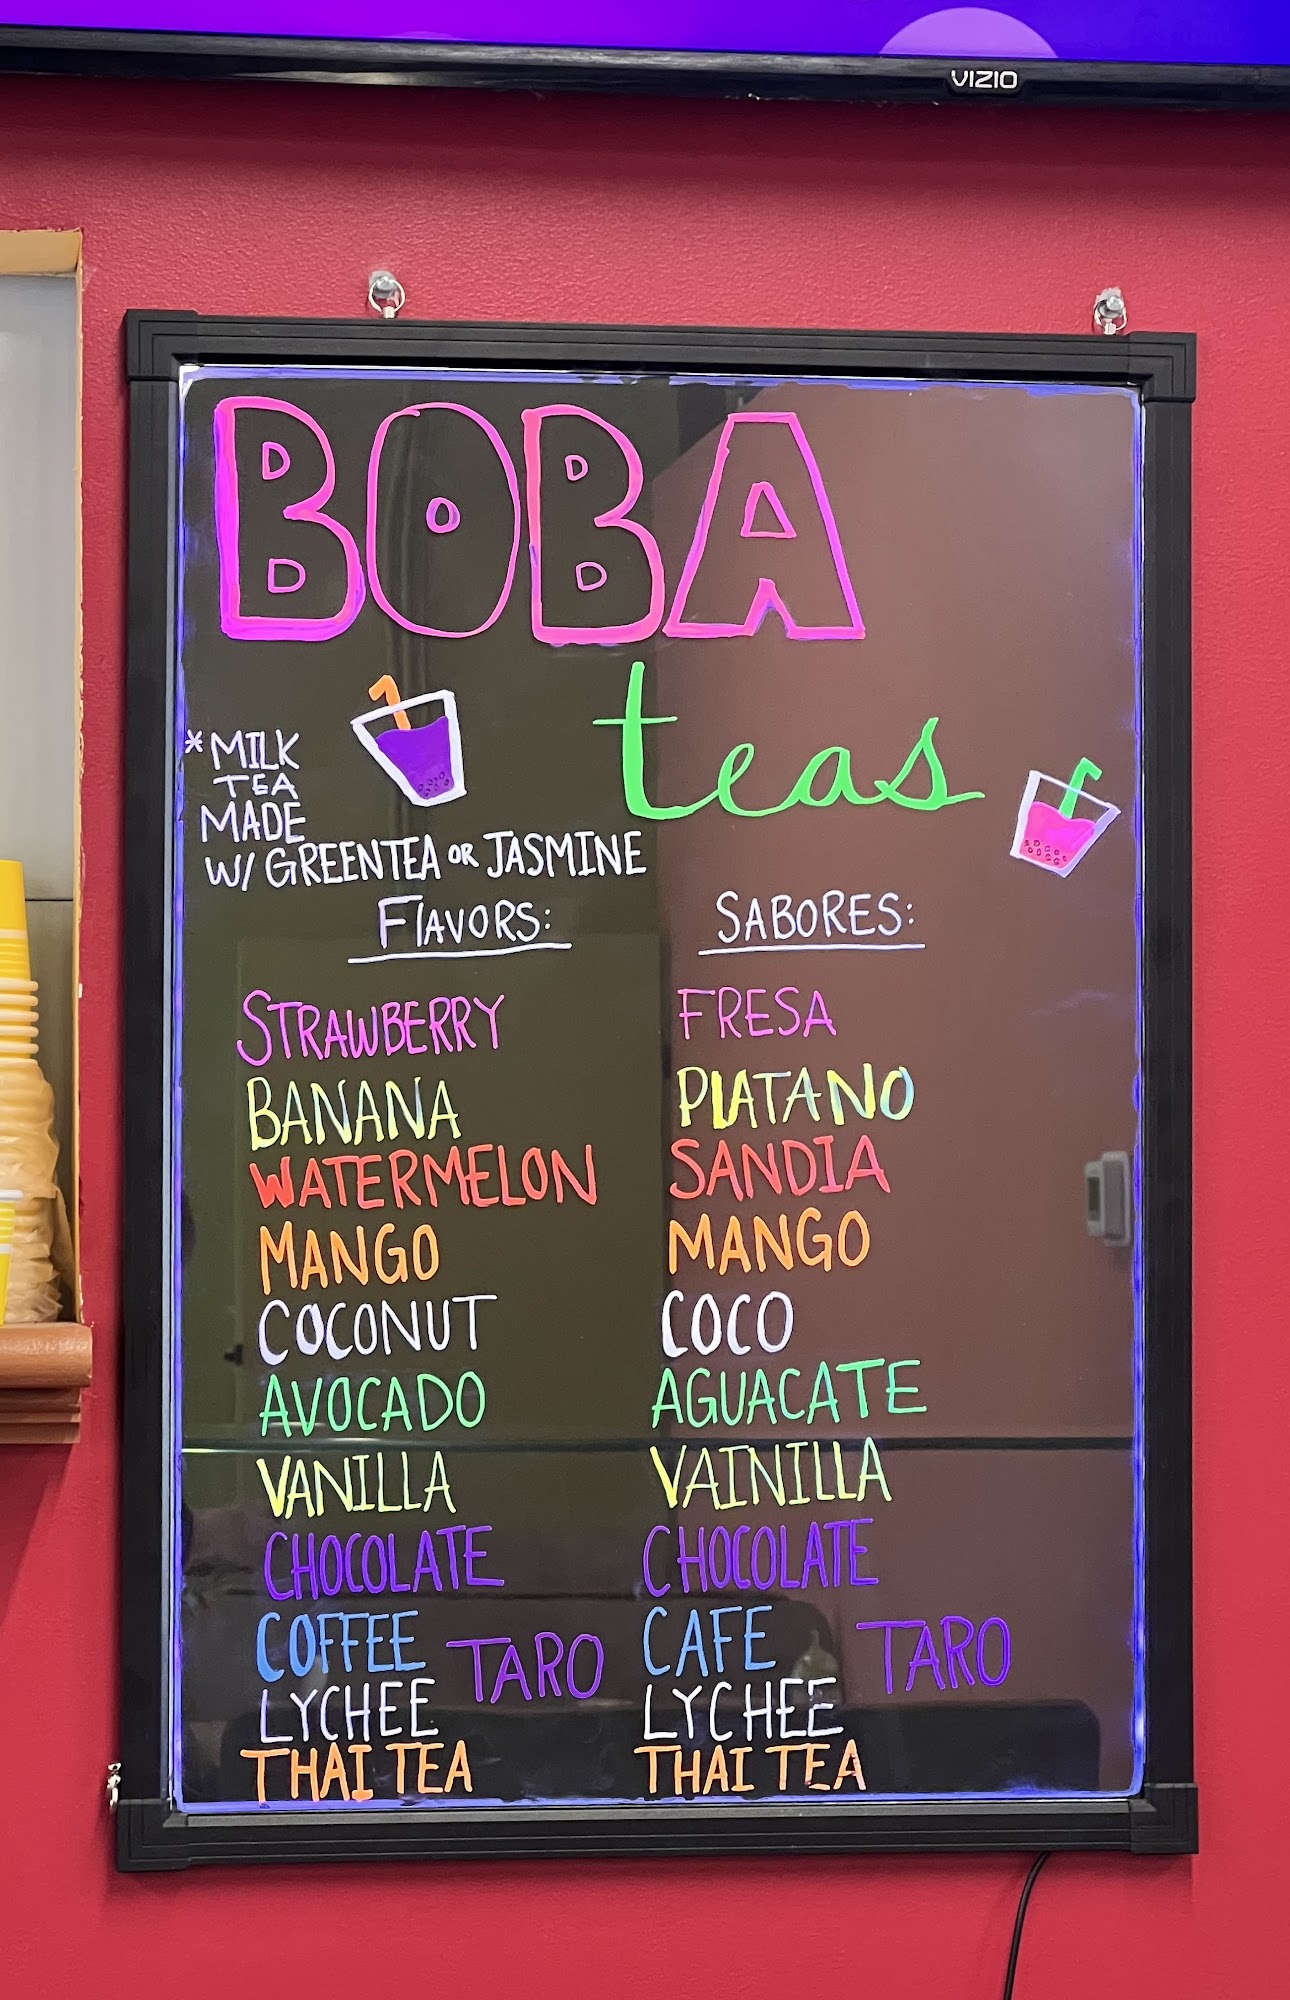 VIZIO
BOBA
teas
*MILK
TEA
MADE
W/ GREENTEA OR JASMINE
FlAVORS:
STRAWBERRY
BANANA
WATERMELON
MANGO
COCONUT
AVOCADO
VANILLA
CHOCOLATE
COFFEE
TARO
LYCHEE
THAI TEA
SABORES:
FRESA
PlATANO
SANDIA
MANGO
COCO
AGUACATE
VAINILLA
CHOCOLATE
CAFE
TARO
LYCHEE
THAI TEA